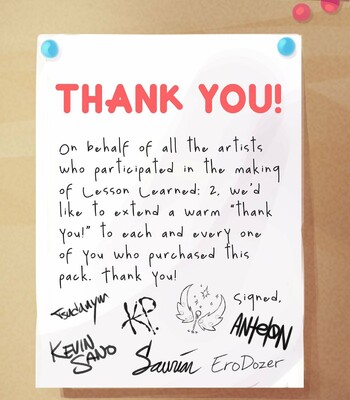 THANK YOU!
On behalf of all the artists
who participated in the making
of Lesson Learned: 2, we'd
like to extend a warm "thank
you!" to each and every one
of you who purchased this
pack. Thank you!
signed,
KP.
ANtelON
KEVIN
SANO
Saurian
EroDozer